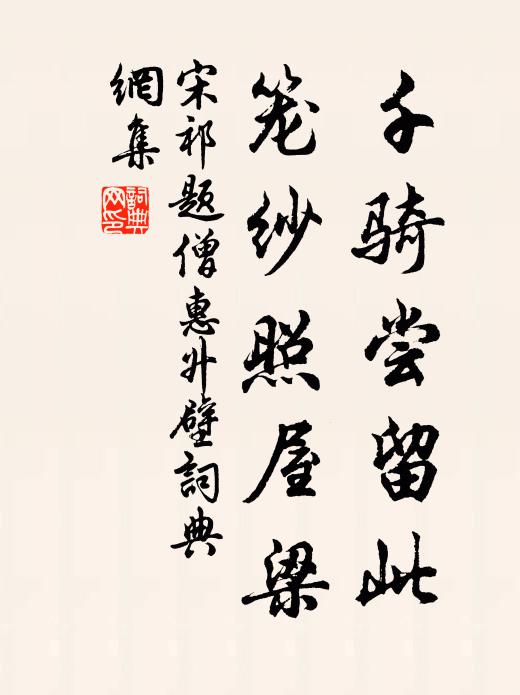 千骑尝留此
笼纱照屋梁
宋祁题僧惠升壁詞典
網集
詞典网印